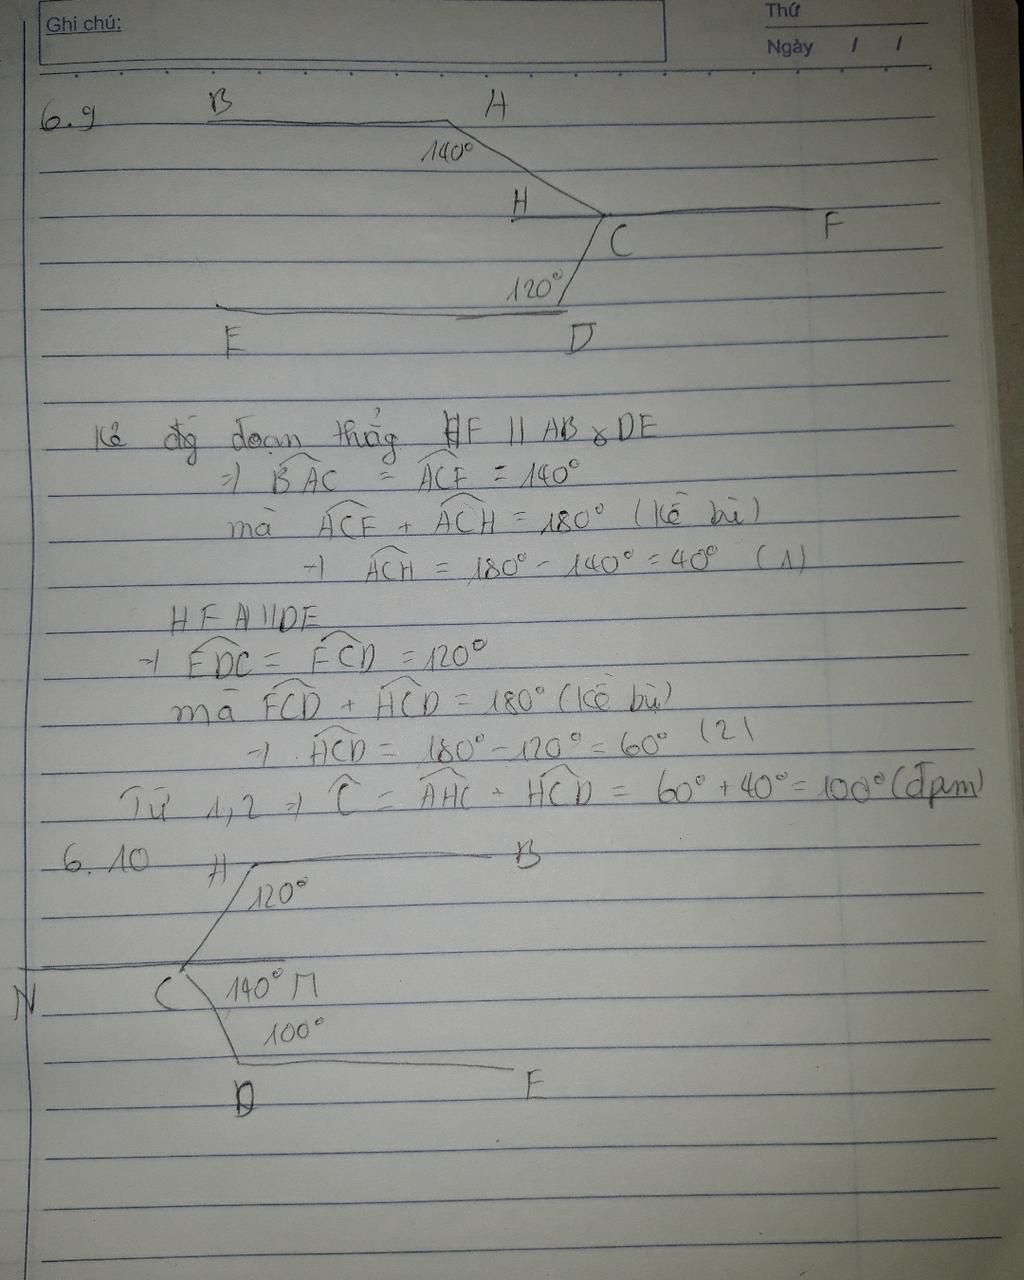 Ghi chú:
Thứ
Ngày / /
6.9
B A
140°
H
C F
120°
E D
Kẻ đg đoạn thẳng HF // AB & DE
=) BAC = ACF = 140°
mà ACF + ACH = 180° (kề bù)
=) ACH = 180° - 140° = 40° (1)
HF // DE
=) EDC = FCD = 120°
mà FCD + HCD = 180° (kề bù)
=) HCD = 180° - 120° = 60° (2)
Từ 1,2 =) C = AHC + HCD = 60° + 40° = 100° (đpcm)
6.10
A B
120°
N C 140° M
100°
D E